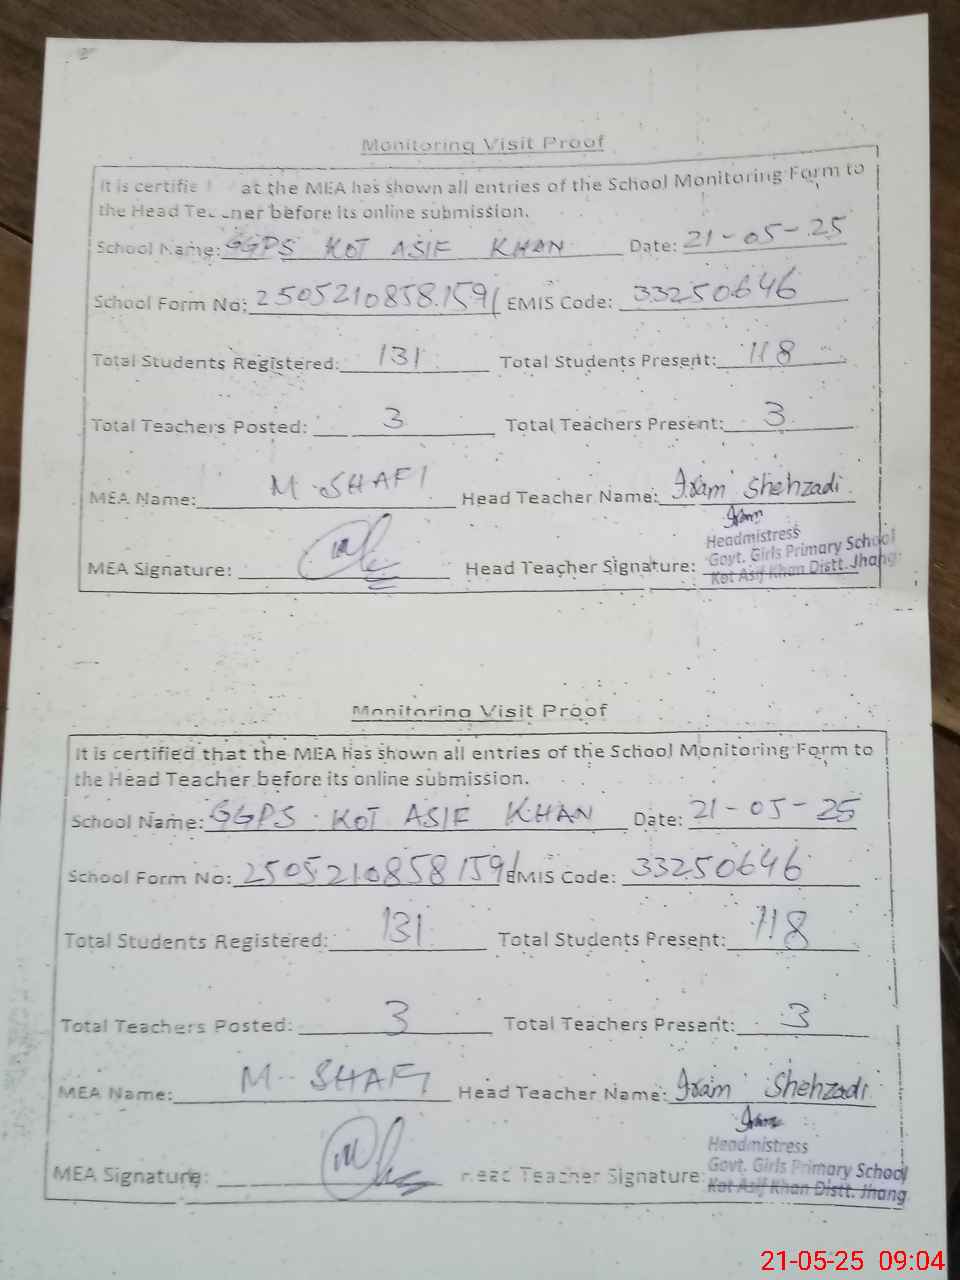 Monitoring Visit Proof
It is certifie at the MEA has shown all entries of the School Monitoring Form to
the Head Teacher before its online submission.
School Name: GGPS KOT ASIF KHAN Date: 21-05-25
School Form No: 2505210858159/ EMIS Code: 33250646
Total Students Registered: 131 Total Students Present: 118
Total Teachers Posted: 3 Total Teachers Present: 3
MEA Name: M. SHAFI Head Teacher Name: Iram Shehzadi
Iram
Headmistress
Govt. Girls Primary School
MEA Signature: Head Teacher Signature: Kot Asif Khan Distt. Jhang
Monitoring Visit Proof
It is certified that the MEA has shown all entries of the School Monitoring Form to
the Head Teacher before its online submission.
School Name: GGPS KOT ASIF KHAN Date: 21-05-25
School Form No: 2505210858159/ EMIS Code: 33250646
Total Students Registered: 131 Total Students Present: 118
Total Teachers Posted: 3 Total Teachers Present: 3
MEA Name: M. SHAFI Head Teacher Name: Iram Shehzadi
Iram
Headmistress
Govt. Girls Primary School
MEA Signature: Head Teacher Signature: Kot Asif Khan Distt. Jhang
21-05-25 09:04